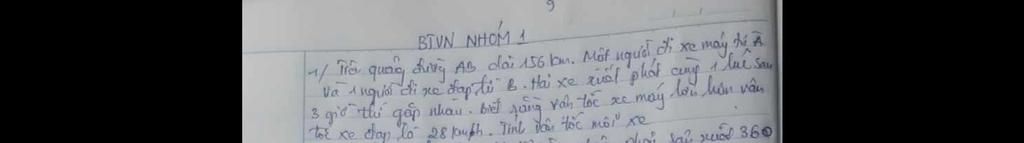 9
BTVN NHÓM 1
1/ Trên quãng đường AB dài 156 km. Một người đi xe máy từ A
và 1 người đi xe đạp từ B. Hai xe xuất phát cùng 1 lúc sau
3 giờ thì gặp nhau. biết rằng vận tốc xe máy lớn hơn vận
tốc xe đạp là 28 km/h. Tính vận tốc mỗi xe
360